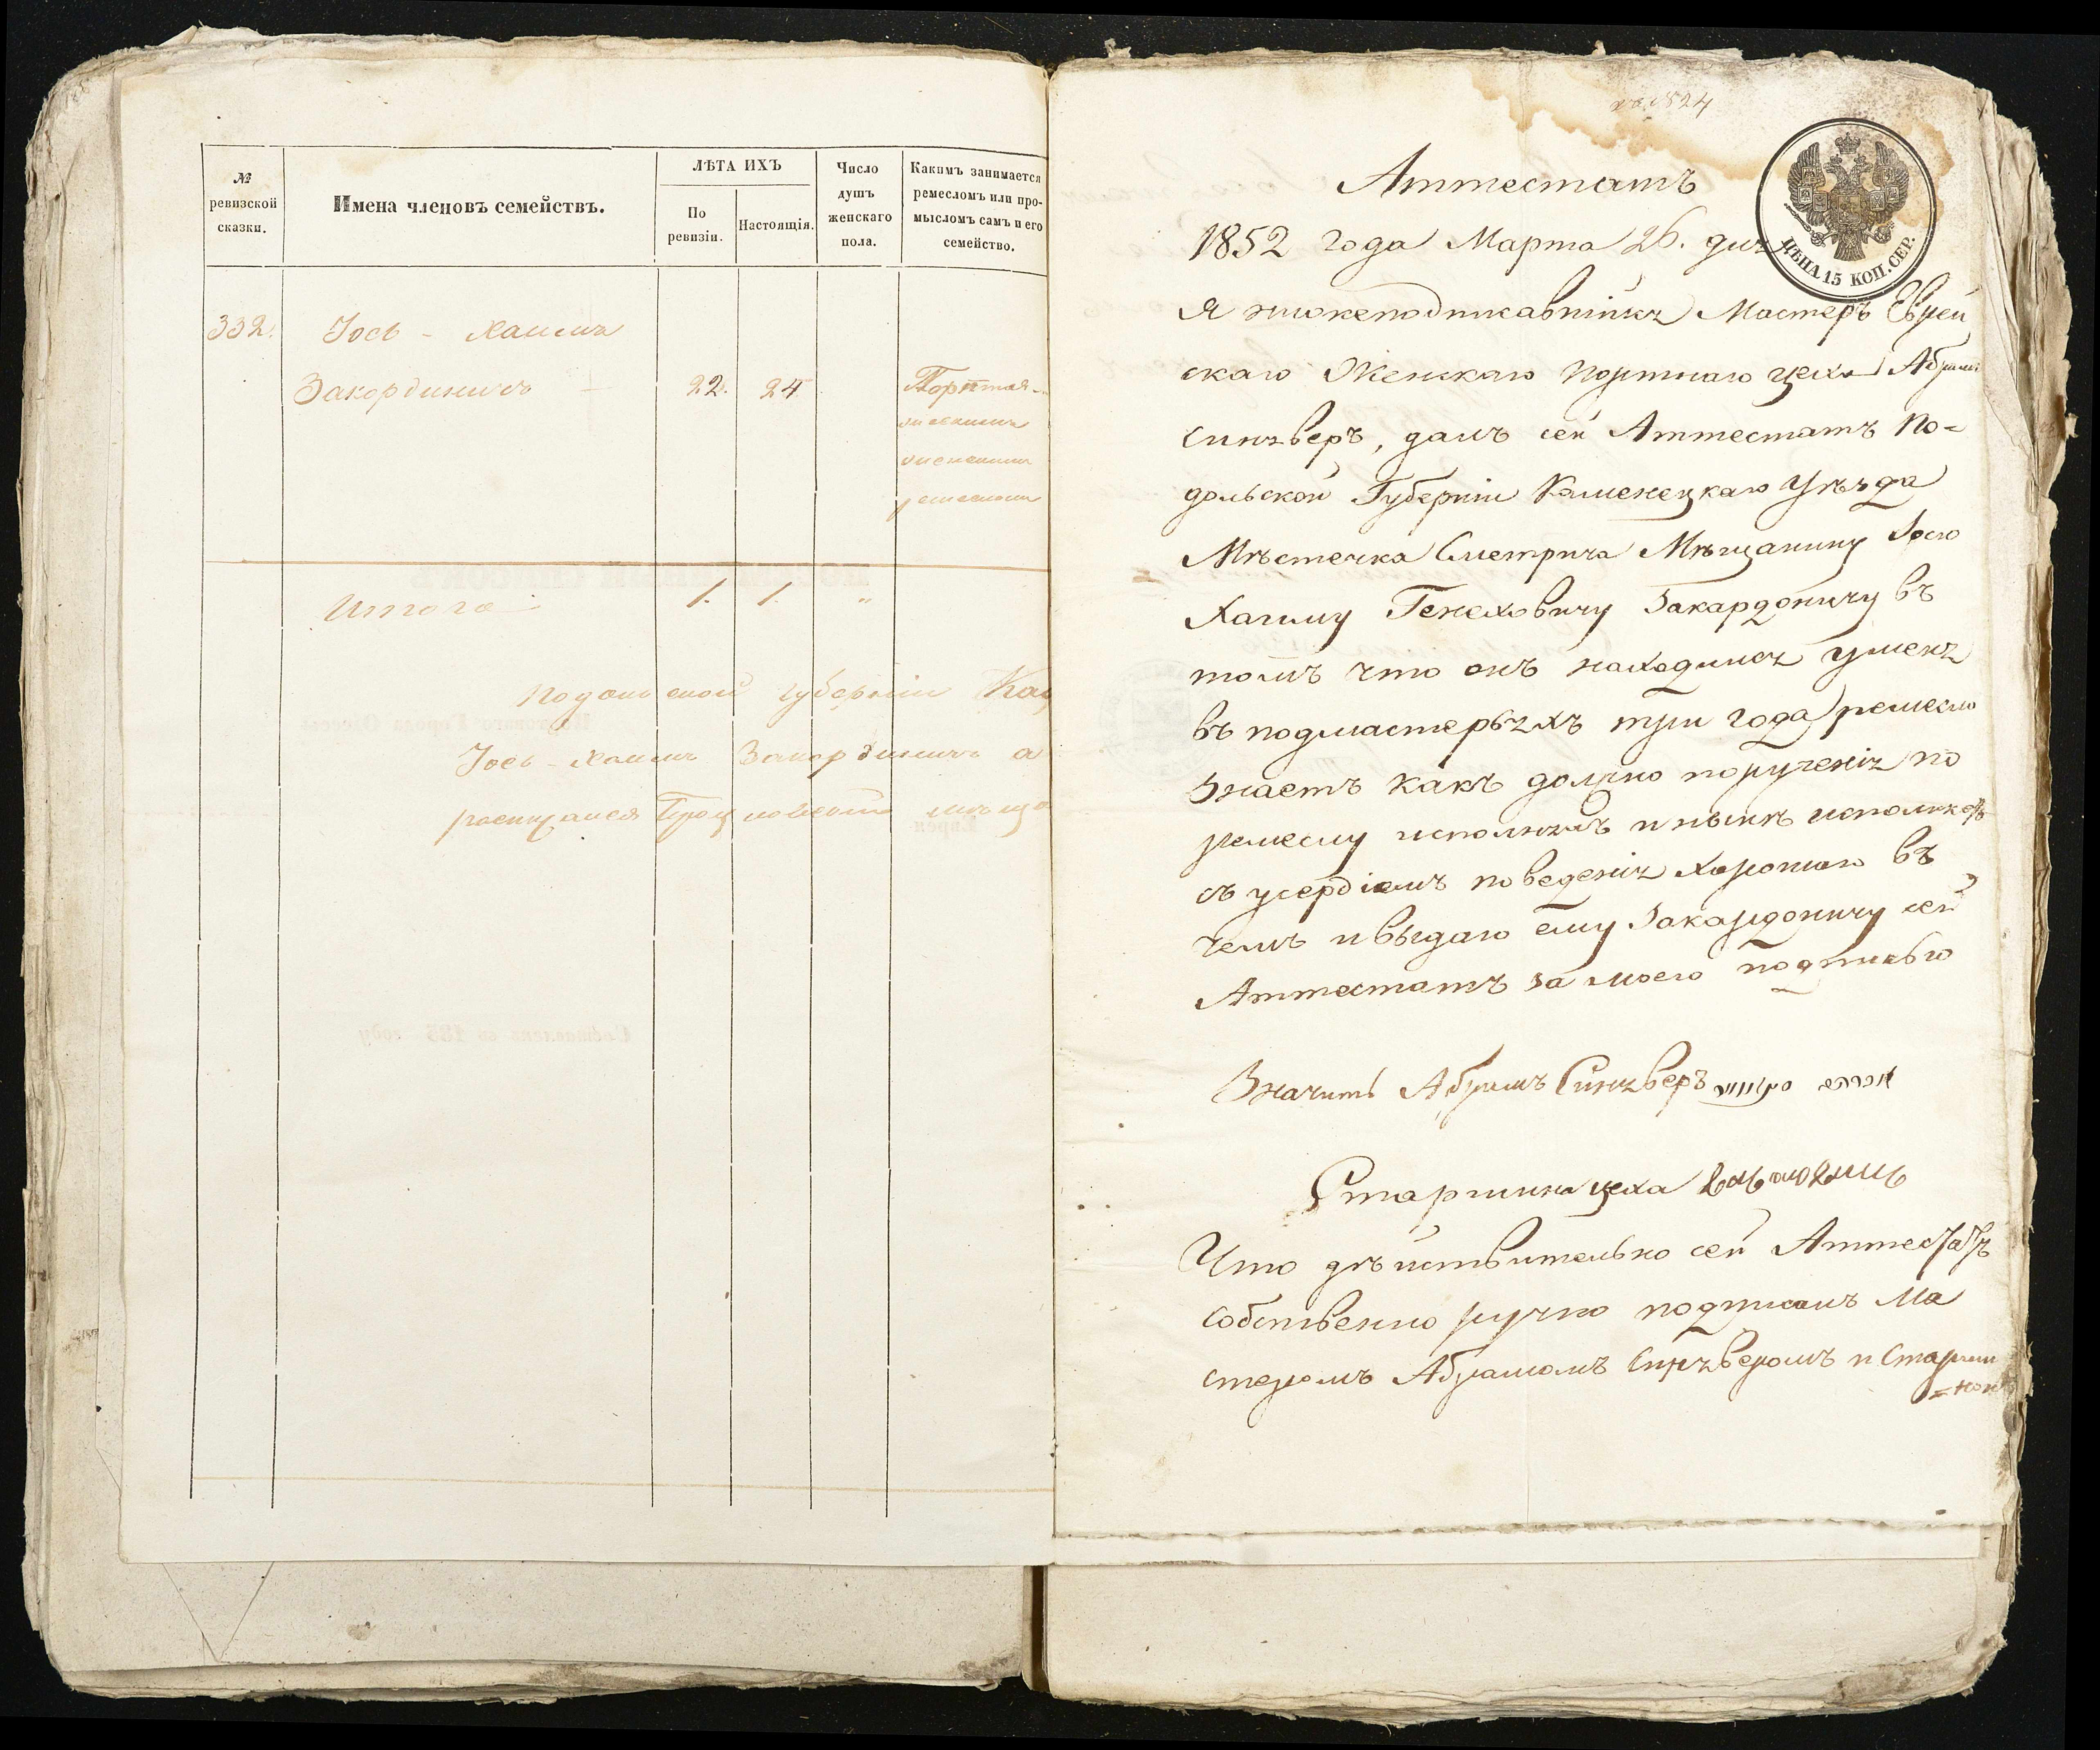 № ревизской сказки.
Имена членовъ семействъ.
ЛѢТА ИХЪ
По ревизіи.
Настоящія.
Число душъ женскаго пола.
Какимъ занимается ремесломъ или промысломъ самъ и его семейство.
332. Іось - Хаимъ
Закордоничъ 22. 24. Портня-
женскимъ
ремесломъ
Итого 1. 1. "
Подольской губерніи
Іось - Хаимъ Закордоничъ а
Аттестатъ
ЦѢНА 15 КОП. СЕР.
1852 года Марта 26. дня
я нижеподписавшійся Мастеръ Еврей
скаго Женскаго портнаго цеха Абрамъ
Синяверъ, далъ сей Аттестатъ По-
дольской Губерніи Каменецкаго Уѣзда
Мѣстечка Смотрича Мѣщанину Іосю
Хаиму Генеховичу Закардоничу въ
томъ что онъ находился уменя
въ подмастерьяхъ три года ремесло
знаетъ какъ должно порученія по
ремеслу исполнялъ и нынѣ исполняетъ
съ усердіемъ поведенія хорошаго въ
чемъ и выдаю ему Закардоничу сей
Аттестатъ за моею подписью
Значитъ Абрамъ Синяверъ
Старшина цеха
Что дѣйствительно сей Аттестатъ
собственно ручно подписанъ Ма
стеромъ Абрамомъ Синяверомъ и Старши
=ною